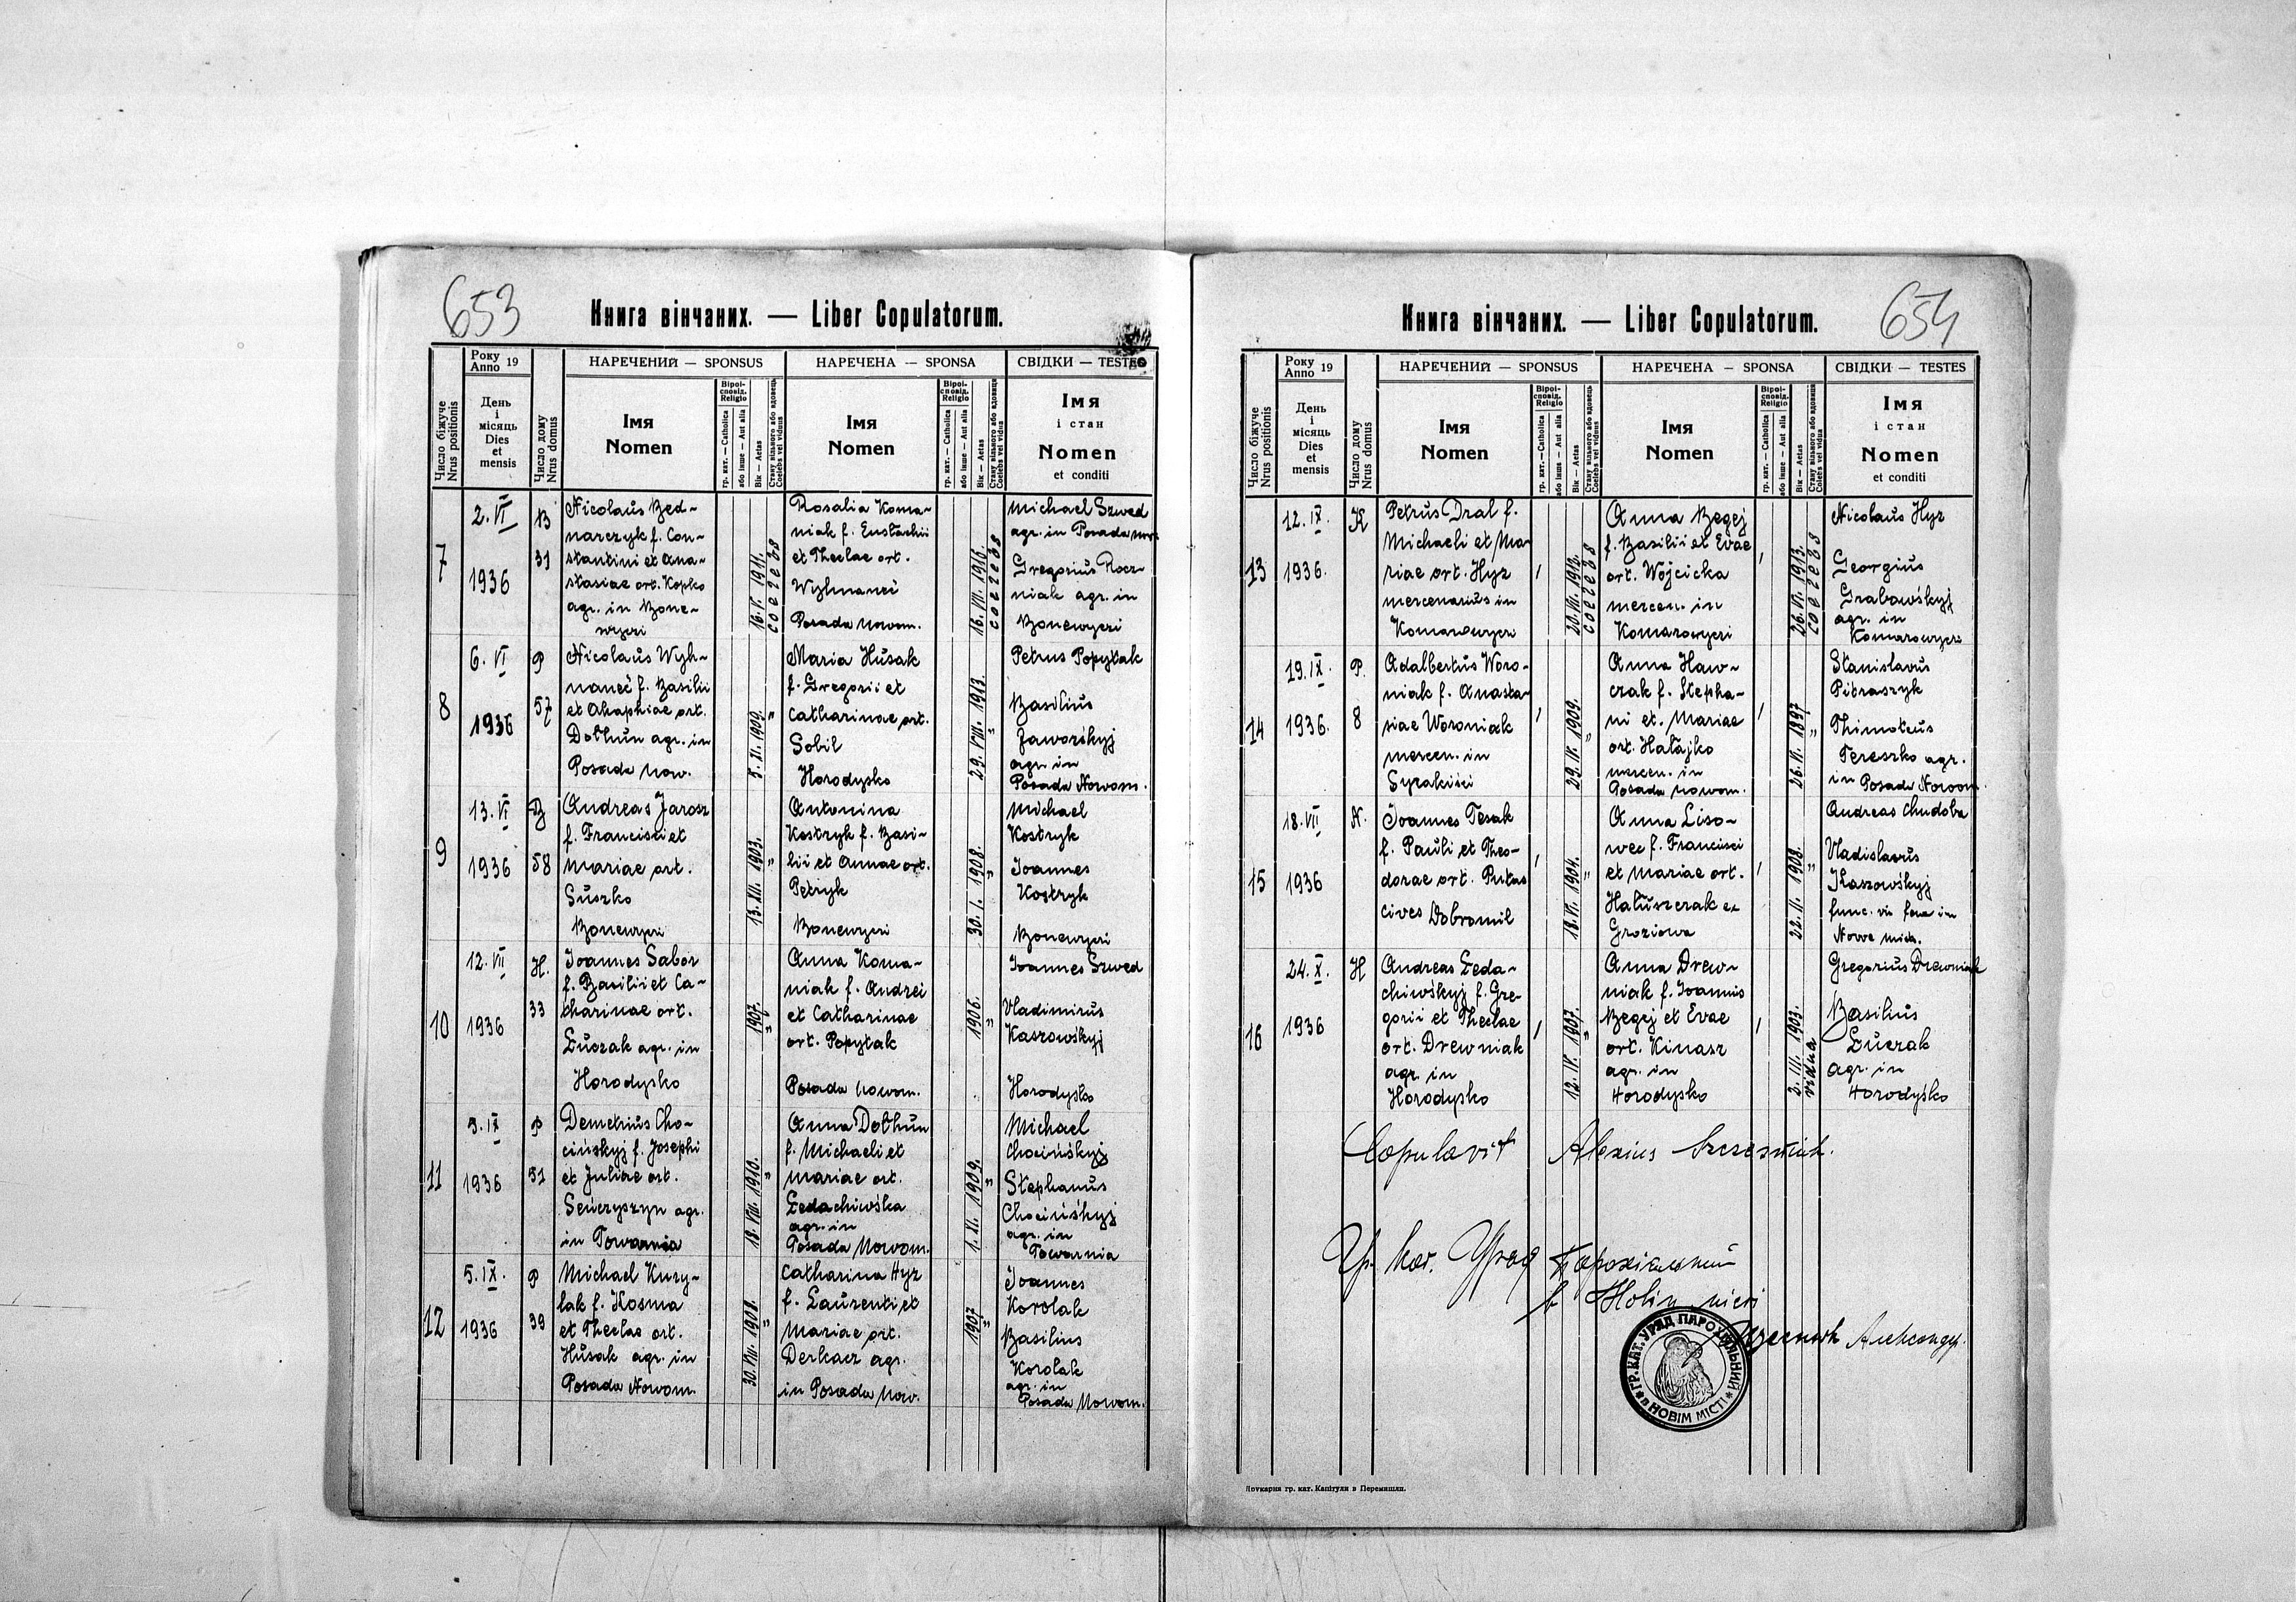 653
Книга вінчаних. — Liber Copulatorum.
Число біжуче
Nrus positionis
Року
Anno 19
День
і
місяць
Dies
et
mensis
Число дому
Nrus domus
НАРЕЧЕНИЙ — SPONSUS
Імя
Nomen
Віроі-
сповід.
Religio
гр. кат. — Catholica
або інше — Aut alia
Вік — Aetas
Стану вільного або вдовець
Coelebs vel viduus
НАРЕЧЕНА — SPONSA
Імя
Nomen
Віроі-
сповід.
Religio
гр. кат. — Catholica
або інше — Aut alia
Вік — Aetas
Стану вільного або вдовиця
Coelebs vel vidua
СВІДКИ — TESTES
Імя
і стан
Nomen
et conditi
7
2. VI
1936
B
31
Nicolaus Bed-
narczyk f. Con-
stantini et Ana-
stasiae ort. Kopko
agr. in Bone-
wyczi
16. V. 1911.
coelebs
Rosalia Koma-
niak f. Eustachii
et Theclae ort.
Wyhnaneć
Posada Nowom.
16. VII. 1916.
coelebs
Michael Szwed
agr. in Posada Now.
Gregorius Rocz-
niak agr. in
Bonewyczi
8
6. VI
1936
P
57
Nicolaus Wyh-
naneć f. Basilii
et Ahaphiae ort.
Dołhun agr. in
Posada Now.
5. XI. 1909.
"
Maria Husak
f. Gregorii et
Catharinae ort.
Sobil
Horodysko
29. VIII. 1913.
"
Petrus Popytak
Basilius
Jaworśkyj
agr. in
Posada Nowom.
9
13. VI
1936
B
58
Andreas Jarosz
f. Francisci et
Mariae ort.
Suszko
Bonewyczi
13. XII. 1903.
"
Antonina
Kostryk f. Basi-
lii et Annae ort.
Petryk
Bonewyczi
30. I. 1908.
"
Michael
Kostryk
Joannes
Kostryk
Bonewyczi
10
12. VII
1936
H.
33
Joannes Sabor
f. Basilii et Ca-
tharinae ort.
Łuczak agr. in
Horodysko
1907.
"
Anna Koma-
niak f. Andrei
et Catharinae
ort. Popytak
Posada Nowom.
1906.
"
Joannes Szwed
Vladimirus
Kaszowśkyj
Horodysko
11
5. IX
1936
P
51
Demetrius Cho-
cińśkyj f. Josephi
et Juliae ort.
Seweryszyn agr.
in Towarnia
18. VIII. 1910.
"
Anna Dołhun
f. Michaeli et
Mariae ort.
Ledachiwśka
agr. in
Posada Nowom.
1. XI. 1909.
"
Michael
Chocińśkyj
Stephanus
Chocińśkyj
agr. in
Towarnia
12
5. IX.
1936
P
39
Michael Kury-
lak f. Kosma
et Theclae ort.
Husak agr. in
Posada Nowom.
30. VIII. 1908.
"
Catharina Hyz
f. Laurenti et
Mariae ort.
Derkacz agr.
in Posada Now.
1907
"
Joannes
Korolak
Basilius
Korolak
agr. in
Posada Nowom.
654
Книга вінчаних. — Liber Copulatorum.
Число біжуче
Nrus positionis
Року
Anno 19
День
і
місяць
Dies
et
mensis
Число дому
Nrus domus
НАРЕЧЕНИЙ — SPONSUS
Імя
Nomen
Віроі-
сповід.
Religio
гр. кат. — Catholica
або інше — Aut alia
Вік — Aetas
Стану вільного або вдовець
Coelebs vel viduus
НАРЕЧЕНА — SPONSA
Імя
Nomen
Віроі-
сповід.
Religio
гр. кат. — Catholica
або інше — Aut alia
Вік — Aetas
Стану вільного або вдовиця
Coelebs vel vidua
СВІДКИ — TESTES
Імя
і стан
Nomen
et conditi
13
12. IX.
1936.
K
Petrus Dral f.
Michaeli et Ma-
riae ort. Hyz
mercenarius in
Komarowyczi
20. VII. 1912.
coelebs
Anna Begej
f. Basilii et Evae
ort. Wojcicka
mercen. in
Komarowyczi
26. VI. 1913.
coelebs
Nicolaus Hyz
Georgius
Grabowśkyj
agr. in
Komarowyczi
14
19. IX.
1936.
P.
8
Adalbertus Woro-
niak f. Anasta-
siae Woroniak
mercen. in
Syrakiści
29. IV. 1909.
"
Anna Haw-
czak f. Stepha-
ni et Mariae
ort. Hałajko
mercen. in
Posada Nowom.
26. VI. 1897
"
Stanislavus
Pitraszyk
Thimoteus
Tereszko agr.
in Posada Nowom.
15
18. VII
1936
N.
Joannes Tesak
f. Pauli et Theo-
dorae ort. Putas
cives Dobromil
18. VI. 1904.
"
Anna Liso-
wec f. Francisci
et Mariae ort.
Hałuszczak ex
Groziowa
22. II. 1908.
"
Andreas Chudoba
Vladislavus
Kaszowśkyj
func. vie ferr in
Nowe Mich.
16
24. X.
1936
H
Andreas Leda-
chiwśkyj f. Gre-
gorii et Theclae
ort. Drewniak
agr. in
Horodysko
12. IV. 1907.
"
Anna Drew-
niak f. Joannis
Begej et Evae
ort. Kinasz
agr. in
Horodysko
2. III. 1903.
vidua
Gregorius Drewniak
Basilius
Łuczak
agr. in
Horodysko
Copulavit Alexius Szczesniuk.
Гр. Кат. Уряд Парохіяльний
в Новім місті
Александр.
ГР. КАТ. УРЯД ПАРОХІЯЛЬНИЙ
в НОВІМ МІСТІ
Друкарня гр. кат. Капітули в Перемишли.